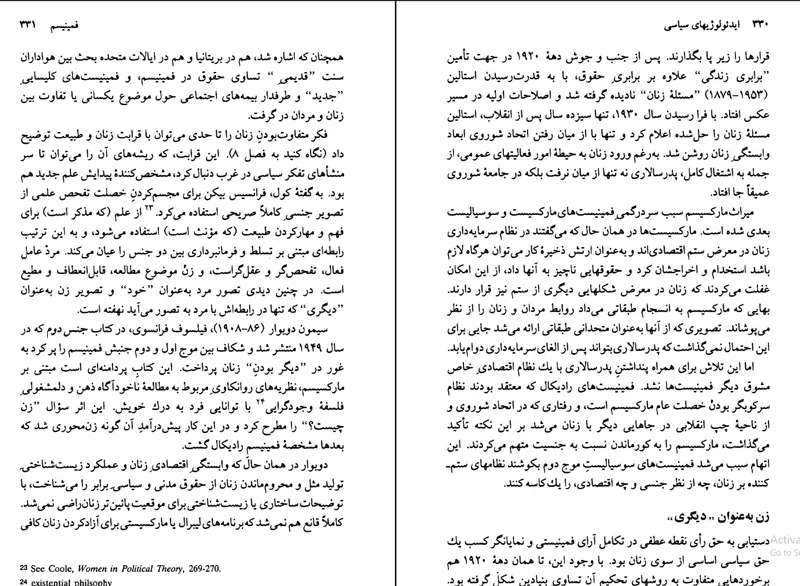 ۳۳۰ ایدئولوژیهای سیاسی
قرارها را زیر پا بگذارند. پس از جنب و جوش دههٔ ۱۹۲۰ در جهت تأمین
”برابری زندگی“ علاوه بر برابری حقوق، با به قدرت‌رسیدن استالین
(۱۹۵۳–۱۸۷۹) ”مسئلهٔ زنان“ نادیده گرفته شد و اصلاحات اولیه در مسیر
عکس افتاد. با فرا رسیدن سال ۱۹۳۰، تنها سیزده سال پس از انقلاب، استالین
مسئلهٔ زنان را حل‌شده اعلام کرد و تنها با از میان رفتن اتحاد شوروی ابعاد
وابستگی زنان روشن شد. به‌رغم ورود زنان به حیطهٔ امور فعالیتهای عمومی، از
جمله به اشتغال کامل، پدرسالاری نه تنها از میان نرفت بلکه در جامعهٔ شوروی
عمیقاً جا افتاد.
میراث مارکسیسم سبب سردرگمی فمینیست‌های مارکسیست و سوسیالیست
بعدی شده است. مارکسیست‌ها در همان حال که می‌گفتند در نظام سرمایه‌داری
زنان در معرض ستم اقتصادی‌اند و به‌عنوان ارتش ذخیرهٔ کار می‌توان هرگاه لازم
باشد استخدام و اخراجشان کرد و حقوقهایی ناچیز به آنها داد، از این امکان
غفلت می‌کردند که زنان در معرض شکلهایی دیگری از ستم نیز قرار دارند.
بهایی که مارکسیسم به انسجام طبقاتی می‌داد روابط مردان و زنان را از نظر
می‌پوشاند. تصویری که از آنها به‌عنوان متحدانی طبقاتی ارائه می‌شد جایی برای
این احتمال نمی‌گذاشت که پدرسالاری بتواند پس از الغای سرمایه‌داری دوام یابد.
اما این تلاش برای همراه پنداشتنِ پدرسالاری با یك نظام اقتصادی خاص
مشوق دیگر فمینیست‌ها نشد. فمینیست‌های رادیکال که معتقد بودند نظام
سرکوبگر بودنْ خصلت عام مارکسیسم است، و رفتاری که در اتحاد شوروی و
از ناحیهٔ چپ انقلابی در جاهایی دیگر با زنان می‌شد بر این نکته تأکید
می‌گذاشت، مارکسیسم را به کورماندن نسبت به جنسیت متهم می‌کردند. این
اتهام سبب می‌شد فمینیست‌های سوسیالیستِ موج دوم بکوشند نظامهای ستم‌ـ
کننده بر زنان، چه از نظر جنسی و چه اقتصادی، را یك‌کاسه کنند.
زن به‌عنوان ”دیگری“
دستیابی به حق رأی نقطه عطفی در تکامل آرای فمینیستی و نمایانگر کسب یك
حق سیاسی اساسی از سوی زنان بود. با وجود این، تا همان دههٔ ۱۹۲۰ هم
برخوردهایی متفاوت به روشهای تحکیم آن تساوی بنیادین شکل گرفته بود.
فمینیسم ۳۳۱
همچنان که اشاره شد، هم در بریتانیا و هم در ایالات متحده بحث بین هواداران
سنت ”قدیمیِ“ تساوی حقوق در فمینیسم، و فمینیست‌های کلیسایی
”جدید“ و طرفدار بیمه‌های اجتماعی حول موضوع یکسانی یا تفاوت بین
زنان و مردان در گرفت.
فکر متفاوت‌بودنِ زنان را تا حدی می‌توان با قرابت زنان و طبیعت توضیح
داد (نگاه کنید به فصل ۸). این قرابت، که ریشه‌های آن را می‌توان تا سر
منشأهای تفکر سیاسی در غرب دنبال کرد، مشخص‌کنندهٔ پیدایش علم جدید هم
بود. به گفتهٔ کول، فرانسیس بیکن برای مجسم‌کردنِ خصلت تفحص علمی از
تصویر جنسیِ کاملاً صریحی استفاده می‌کرد.۲۳ از علم (که مذکر است) برای
فهم و مهارکردن طبیعت (که مؤنث است) استفاده می‌شود، و به این ترتیب
رابطه‌ای مبتنی بر تسلط و فرمانبرداری بین دو جنس را عیان می‌کند. مردْ عامل
فعال، تفحص‌گر و عقل‌گراست، و زنْ موضوع مطالعه، قابل‌انعطاف و مطیع
است. در چنین دیدی تصور مرد به‌عنوان ”خود“ و تصویر زن به‌عنوان
”دیگری“ که تنها در رابطه‌اش با مرد به تصور می‌آید نهفته است.
سیمون دوبوار (۸۶–۱۹۰۸)، فیلسوف فرانسوی، در کتاب جنس دوم که در
سال ۱۹۴۹ منتشر شد و شکاف بین موج اول و دوم جنبش فمینیسم را پر کرد به
غور در ”دیگر بودنِ“ زنان پرداخت. این کتابِ پردامنه‌ای است مبتنی بر
مارکسیسم، نظریه‌های روانکاوی مربوط به مطالعهٔ ناخودآگاه ذهن و دلمشغولی
فلسفهٔ وجودگرایی۲۴ با توانایی فرد به درك خویش. این اثر سؤال ”زن
چیست؟“ را مطرح کرد و در این کار پیش‌درآمدِ آن گونه زن‌محوری شد که
بعدها مشخصهٔ فمینیسم رادیکال گشت.
دوبوار در همان حال که وابستگیِ اقتصادیِ زنان و عملکرد زیست‌شناختیِ
تولید مثل و محروم‌ماندن زنان از حقوق مدنی و سیاسیِ برابر را می‌شناخت، با
توضیحات ساختاری یا زیست‌شناختی برای موقعیت پائین‌تر زنان راضی نمی‌شد.
کاملاً قانع هم نمی‌شد که برنامه‌های لیبرال یا مارکسیستی برای آزادکردن زنان کافی
23 See Coole, Women in Political Theory, 269-270.
24 existential philosophy
Activa
Go to Se